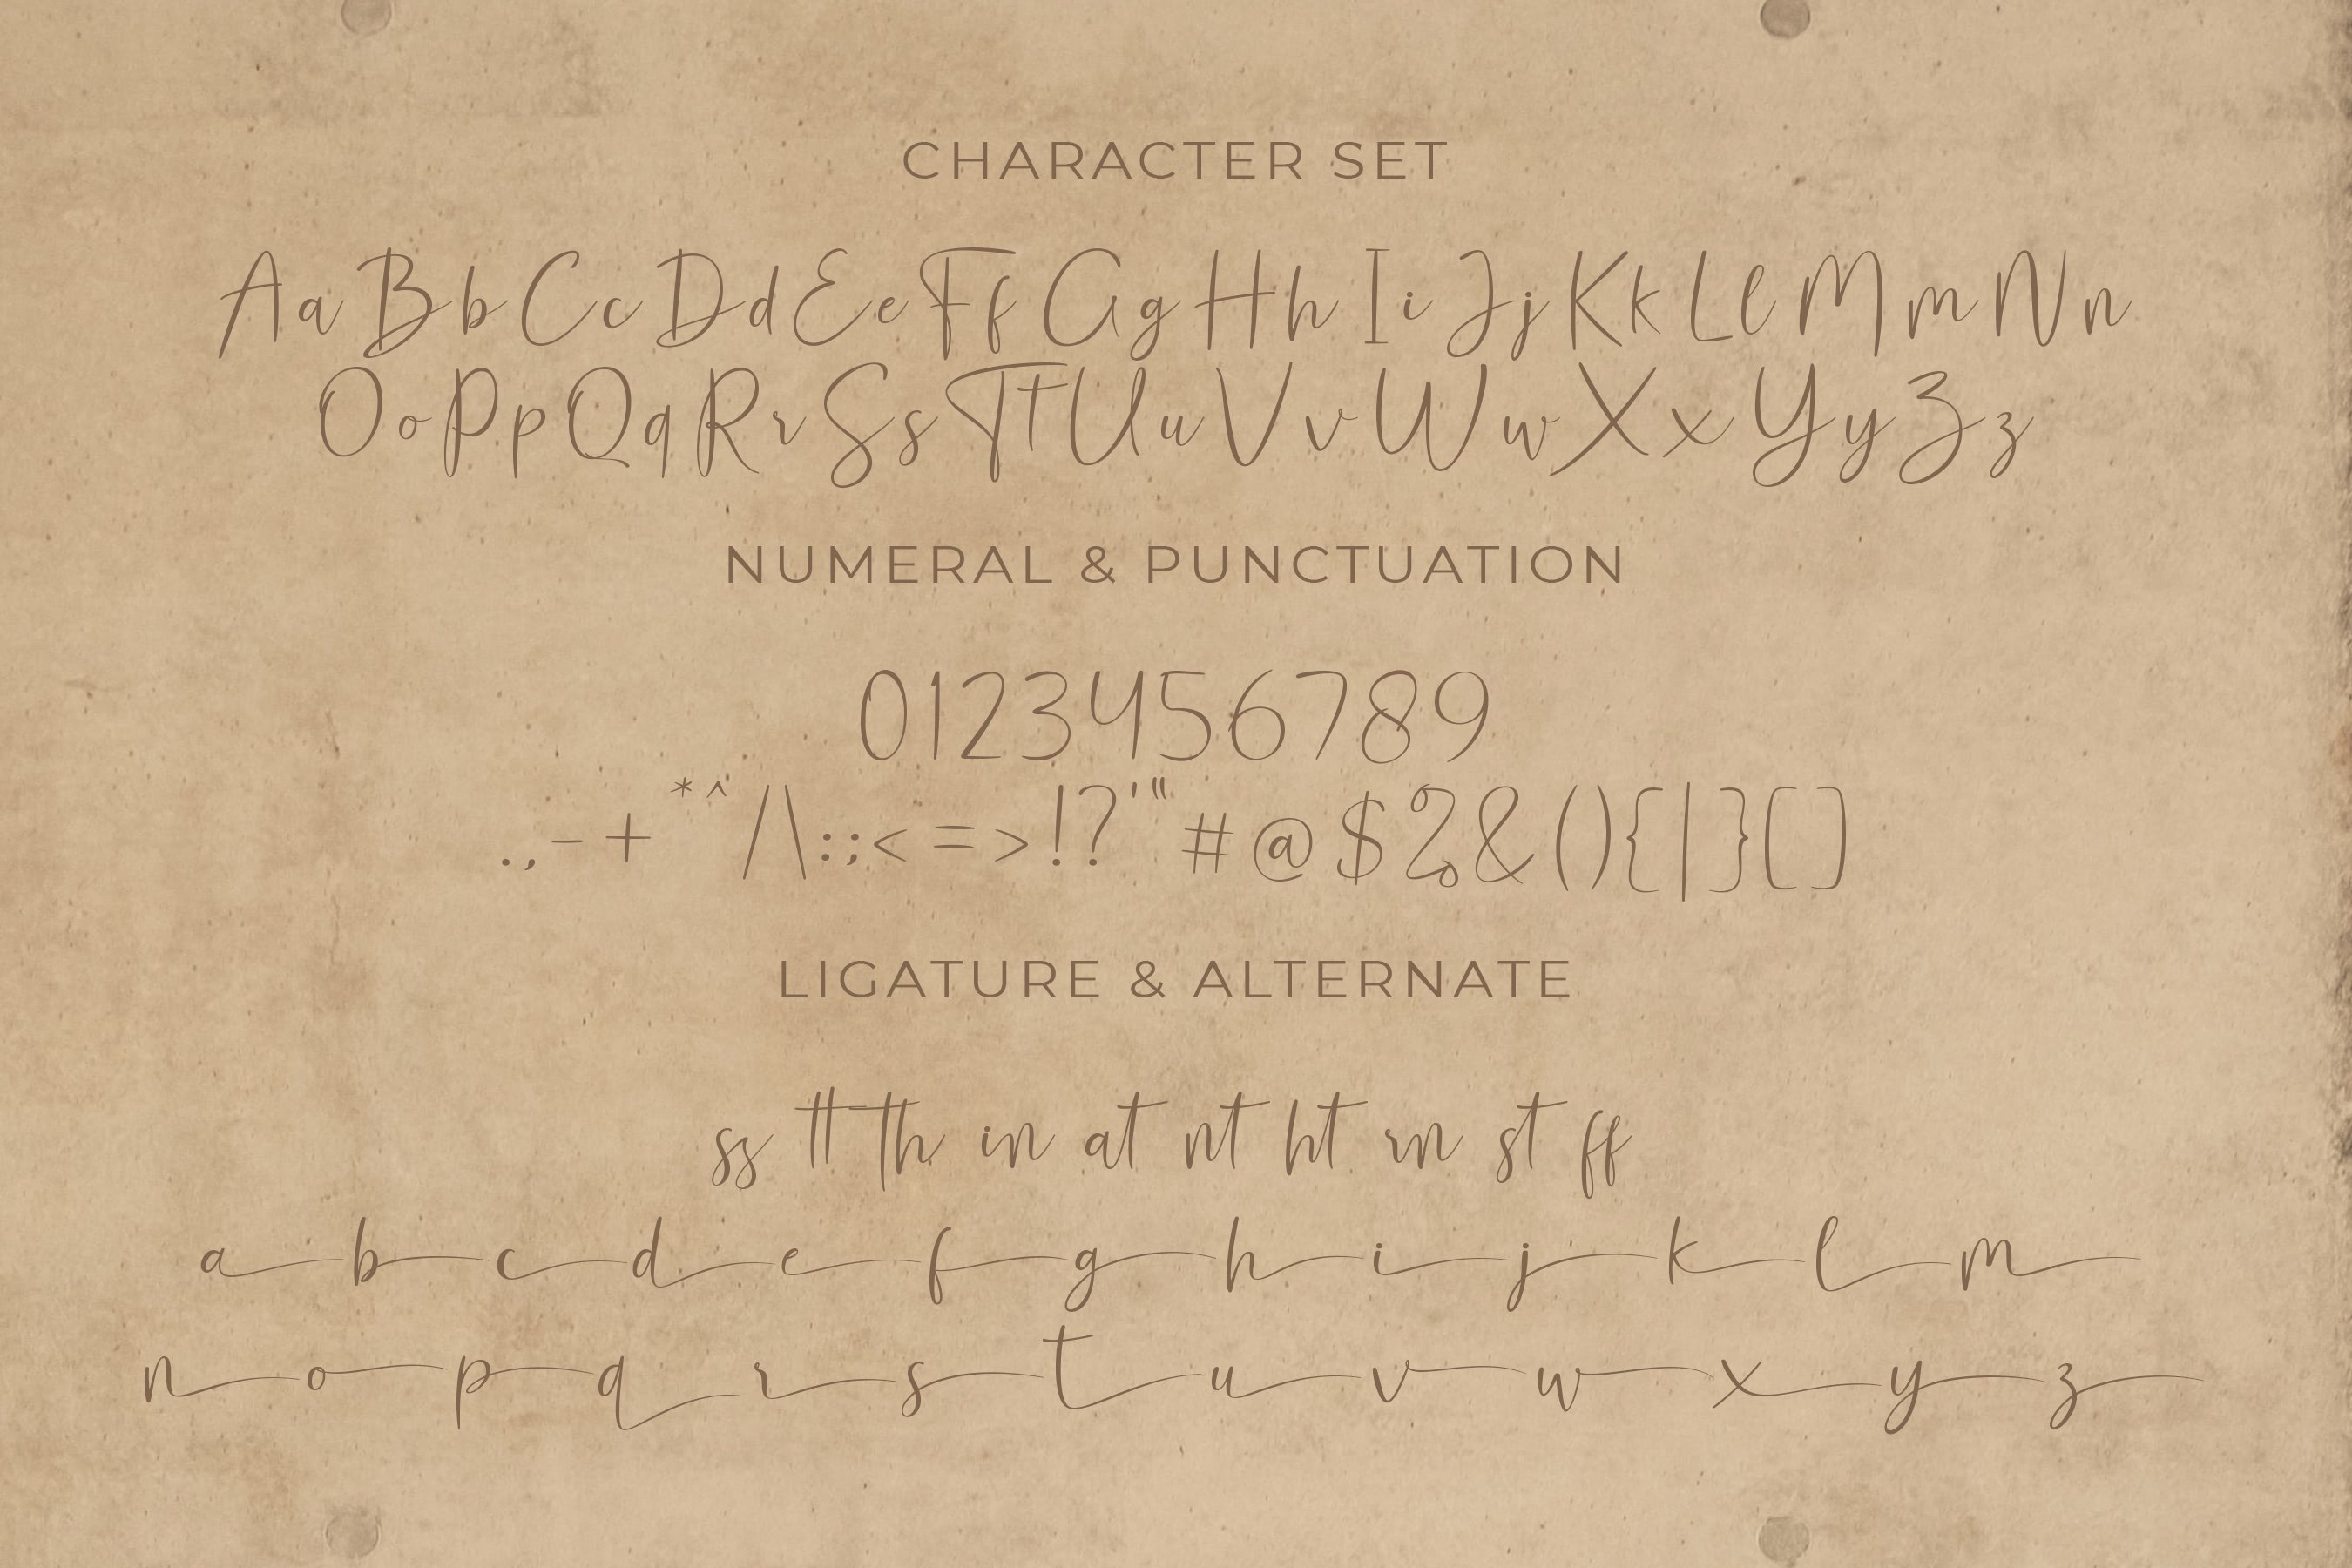 CHARACTER SET
Aa Bb Cc Dd Ee Ff Gg Hh Ii Jj Kk Ll Mm Nn
Oo Pp Qq Rr Ss Tt Uu Vv Ww Xx Yy Zz
NUMERAL & PUNCTUATION
0123456789
.,-+*^/\:;<=>!?'"#@$%&(){|}[]
LIGATURE & ALTERNATE
ss tt th in at nt ht rn st ff
a b c d e f g h i j k l m
n o p q r s t u v w x y z